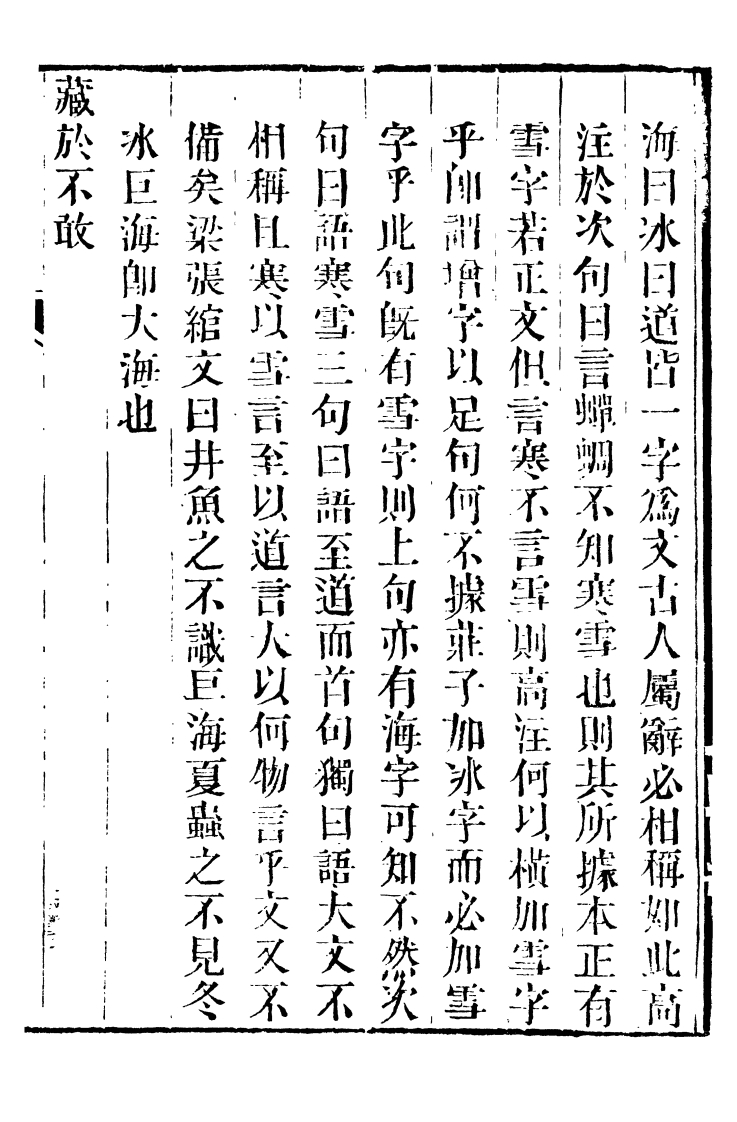 海曰冰曰道皆一字爲文古人屬辭必相稱如此高
注於次句曰言蟬蜩不知寒雪也則其所據本正有
雪字若正文但言寒不言雪則高注何以橫加雪字
乎即謂增字以足句何不據莊子加冰字而必加雪
字乎此句旣有雪字則上句亦有海字可知不然次
句曰語寒雪三句曰語至道而首句獨曰語大文不
相稱且寒以雪言至以道言大以何物言乎文又不
備矣梁張綰文曰井魚之不識巨海夏蟲之不見冬
冰巨海卽大海也
藏於不敢